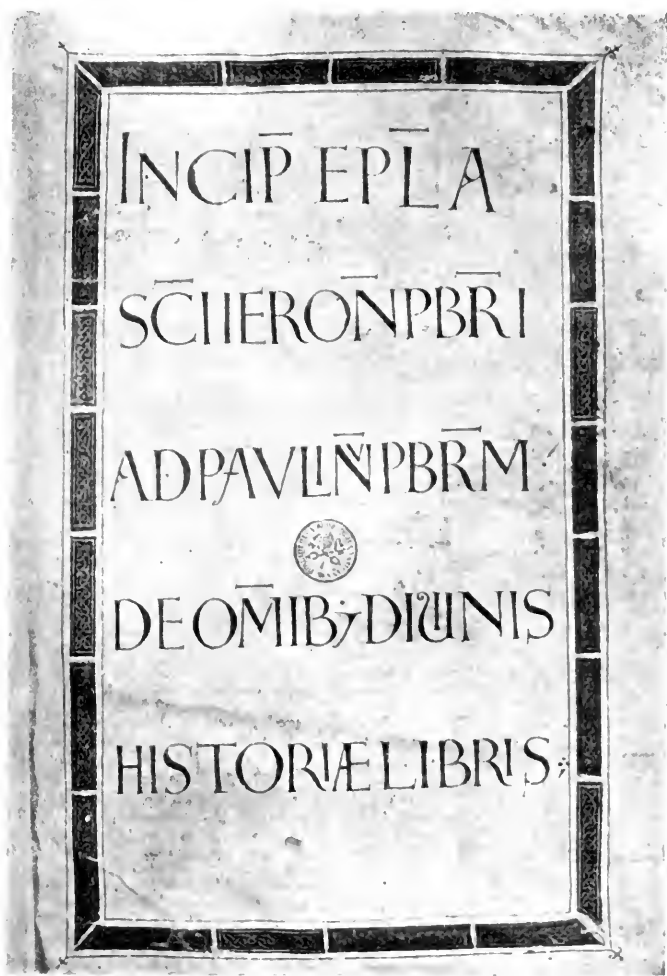 INCIP̅ EPL̅A
SC̅I IERON̅ PBR̅I
AD PAVLIN̅ PBR̅M
DE OM̅IB; DIUINIS
HISTORIÆ LIBRIS